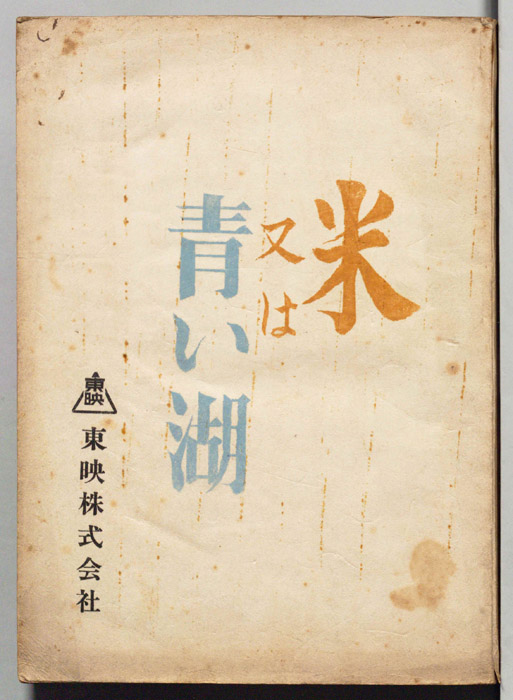 米
又は
青い湖
東映
東映株式会社